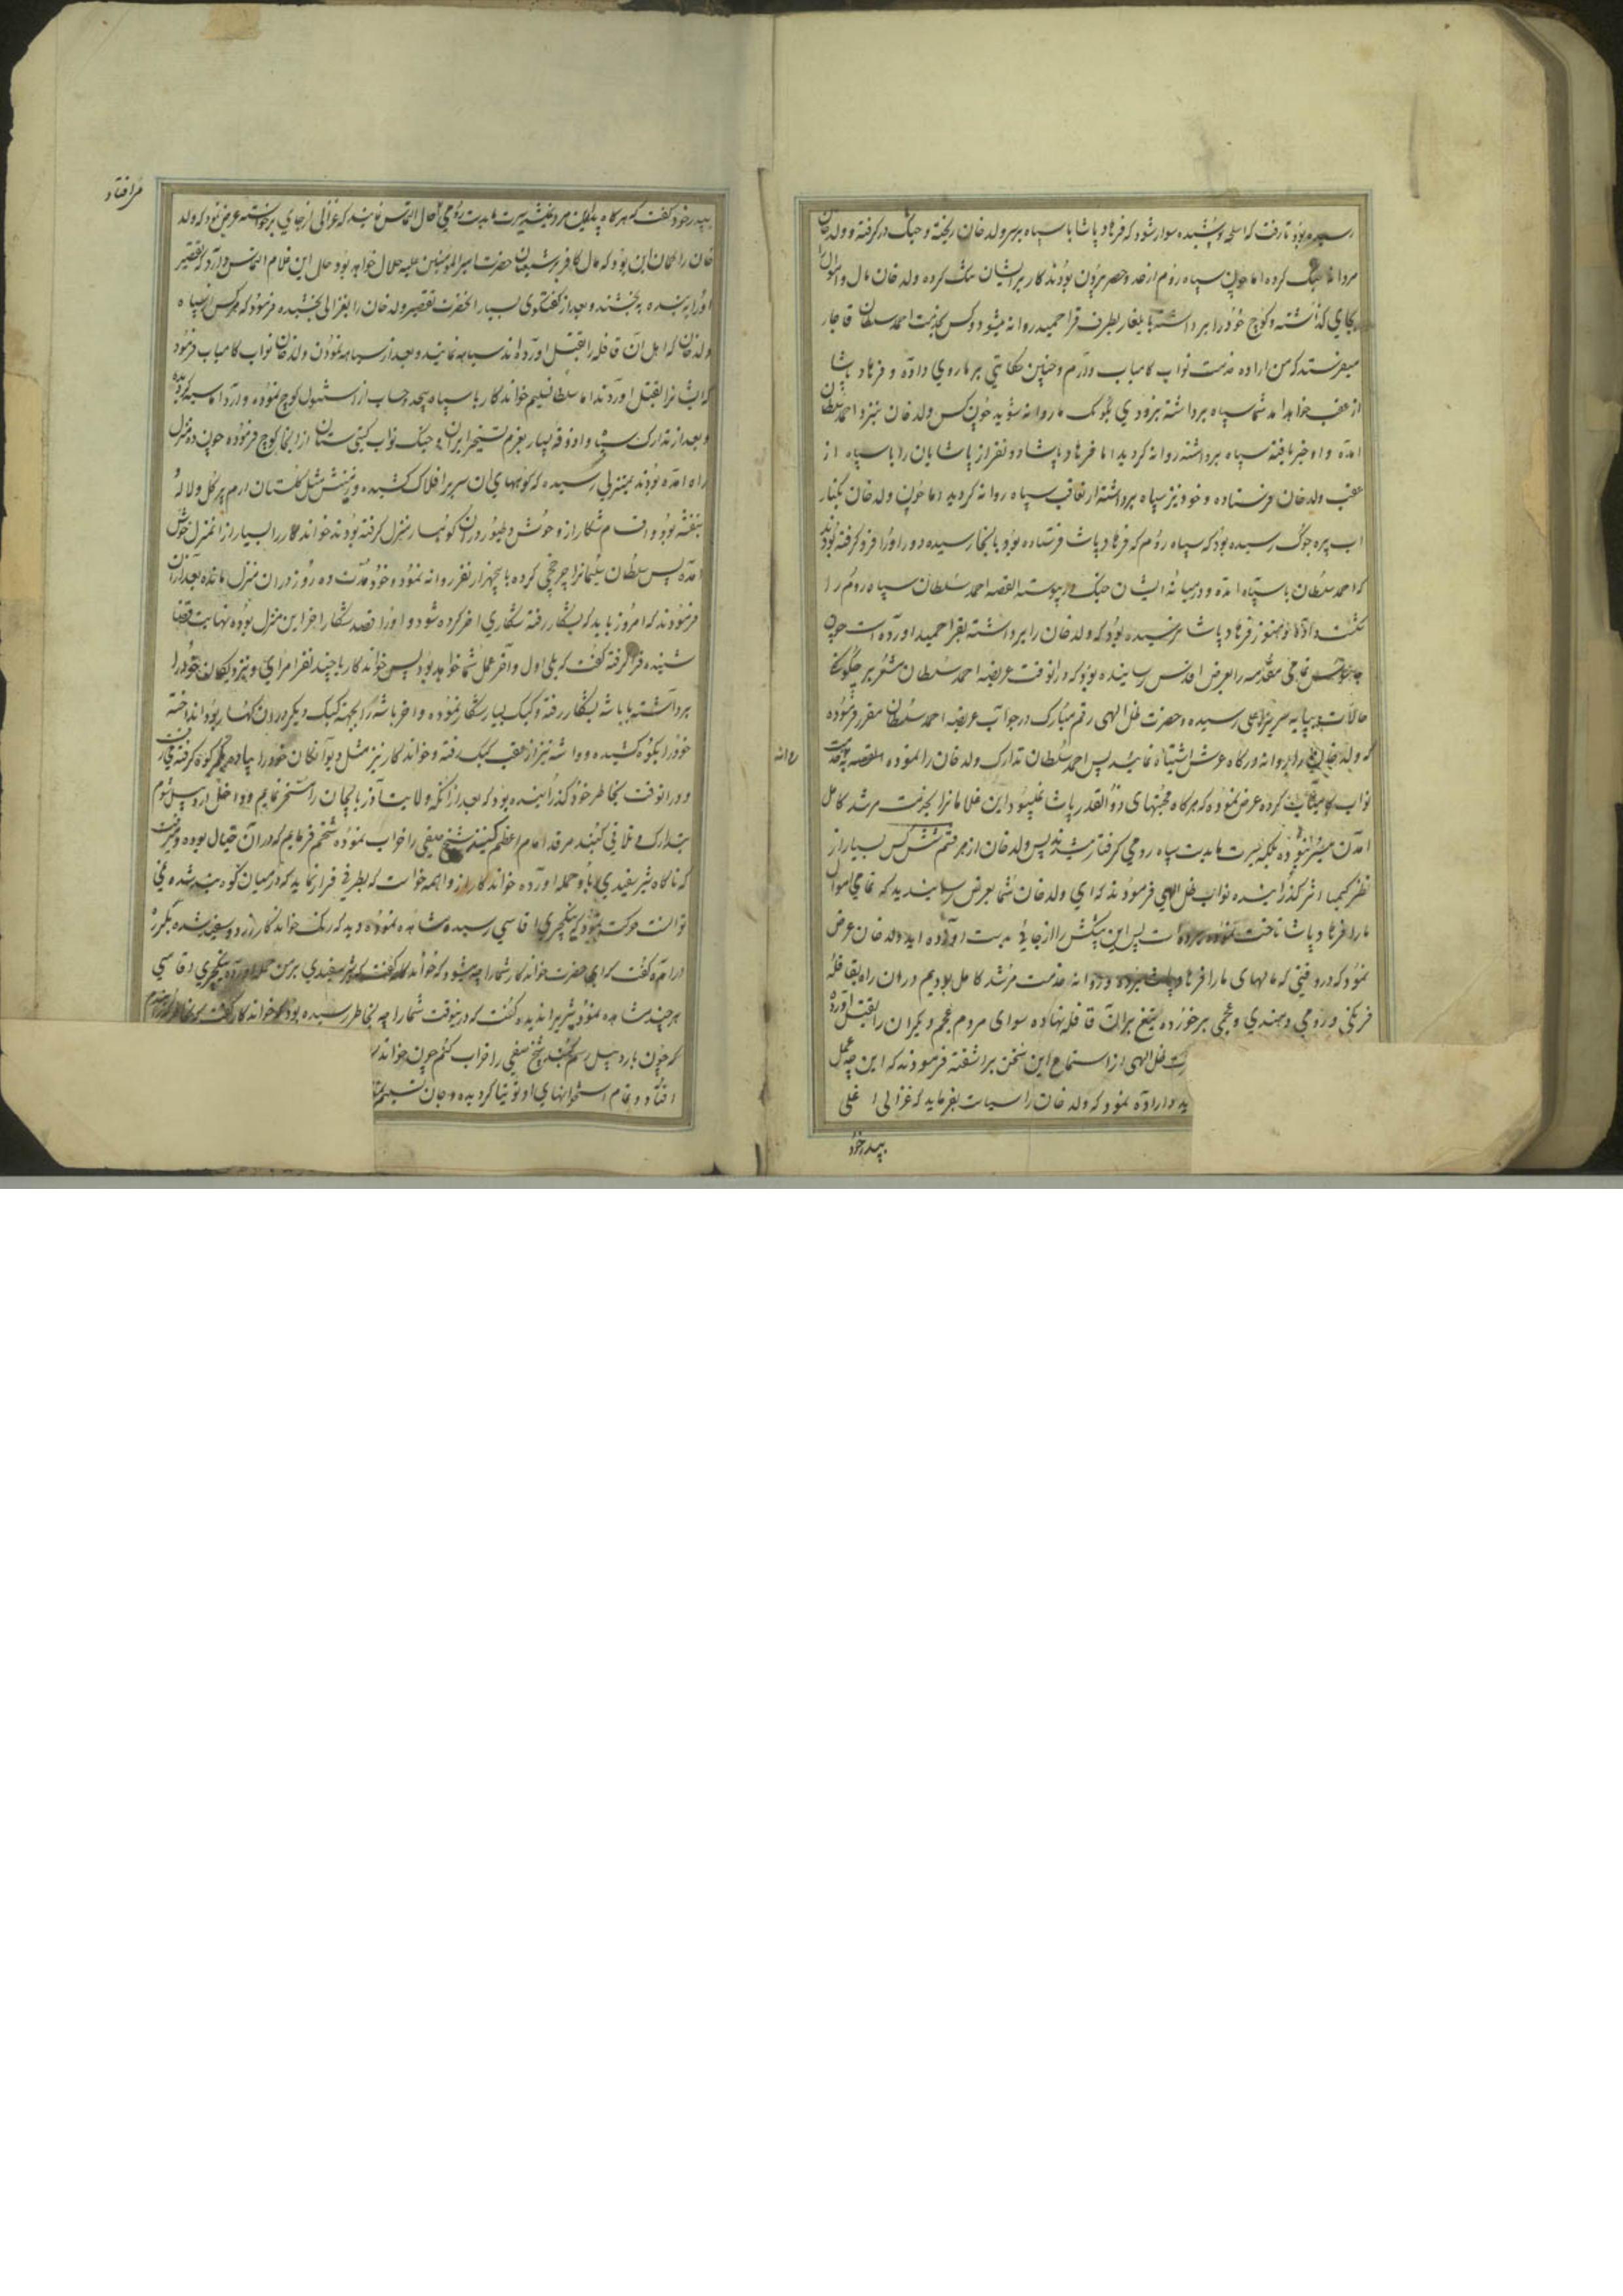 رسیده بود تا رفت که اسلحه پوشیده سوار شود که فرهاد پاشا با سپاه برسر ولد خان ریخته و جنک در کرفته و ولد خان
مردانه جنک کرده اما چون سپاه روم از حد و حصر بیرون بودند کار بر ایشان تنک کرده ولد خان مال و اموال
بجای کذاشته و کوچ خود را برداشته بایلغار بطرف قرا حمید روانه میشود و کس بخدمت احمد سلطان قاجار
میفرستد که من اراده خدمت نواب کامیاب دارم و چنین حکایتی بر ما روی داده و فرهاد پاشا
از عقب خواهد آمد شما سپاه برداشته بزودی بکومک ما روانه شوید چون کس ولد خان بنزد احمد سلطان
آمده و او خبر یافته سپاه برداشته روانه کردید اما فرهاد پاشا دو نفر از پاشایان را با سپاه از
عقب ولد خان فرستاده و خود نیز سپاه برداشته از تعاقب سپاه روانه کردید اما چون ولد خان بکنار
آب پره جوک رسیده بود که سپاه روم که فرهاد پاشا فرستاده بود بانجا رسیده دور او را فرو کرفته بودند
که احمد سلطان با سپاه آمده و در میانه ایشان جنک در پیوسته القصه احمد سلطان سپاه روم را
شکست داده و هنوز فرهاد پاشا نرسیده بود که ولد خان را برداشته بقرا حمید آورده است چون
تمامی مقدمه را بعرض اقدس رسانیده بود که در آنوقت عریضه احمد سلطان مشعر بر چکونکی
حالات بپایه سریر اعلی رسیده و حضرت ظل الهی رقم مبارک در جواب عریضه احمد سلطان مقرر فرموده
که ولد خان را روانه درکاه عرش اشتباه نمائید پس احمد سلطان تدارک ولد خان را نموده القصه بخدمت
نواب کامیاب کرده عرض نموده که هرکاه محبتهای ذو القدر پاشا نمیبود این غلامانرا بخدمت مرشد کامل
آمدن میسر نبوده بلکه میبایست بدست سپاه رومی کرفتار میشدند پس ولد خان از هر قسم پیشکش بسیار از
نظر کیمیا اثر کذرانیده نواب ظل الهی فرمودند که ای ولد خان شما بعرض رسانیدید که تمامی اموال
ما را فرهاد پاشا تاخت نموده برده است پس این پیشکش را از جائی بدست آورده اید ولد خان عرض
نمود که در وقتی که مالهای ما را فرهاد پاشا برده و روانه خدمت مرشد کامل بودیم در آن راه بقافله
فرنکی و رومی و هندی و عجمی برخورده تیغ بر آن قافله نهاده سوای مردم عجم دیکران را بقتل آورده
ظل الهی از استماع این سخن برآشفته فرمودند که این چه عمل
و اراده نمود که ولد خان را سیاست بفرماید که غزالی اغلی
بپدر خود
بپدر خود کفت که هرکاه التماس نمایند که غزالی از جای برخواسته عرض نمود که ولد
خان را کمان این بود که مال کافر بر شیعیان حضرت امیر المومنین علیه حلال خواهد بود حال این غلام التماس دارد که تقصیر
او را به بنده به بخشند و بعد از کفتکوی بسیار آنحضرت تقصیر ولد خان را بغزالی بخشیده فرمود که هرکس از سپاه
ولد خان که اهل آن قافله را بقتل آورده اند سیاهه نمایند و بعد از سیاهه نمودن ولد خان نواب کامیاب فرمود
که ایشانرا بقتل آوردند اما سلطان سلیم خواندکار با سپاه بیحد و حساب از استنبول کوچ نموده وارد آماسیه کردیده
و بعد از تدارک سپاه و آذوقه بسیار بعزم تسخیر ایران و جنک نواب کیتی ستان از آنجا کوچ فرموده چون ده منزل
راه آمده بودند بمنزلی رسیده که کوههای آن سر بر افلاک کشیده و زمینش مثل کلستان ارم پر کل و لاله
بنفشه بود و اقسام شکار از وحوش و طیور در آن کوهسار منزل کرفته بودند خواندکار را بسیار از آنمنزل خوش
آمده پس سلطان سلیمانرا چرخچی کرده با پنجهزار نفر روانه نمود و خود مدت ده روز در آن منزل مانده بعد از آن
فرمودند که امروز باید که بشکار رفته شکاری آخر کرده شود و او را قصد شکار آخر این منزل بوده نهایت قضا
شنیده فرا کرفته کفت که بلی اول و آخر عمل شما خواهد بود پس خواندکار با چند نفر امرای و نزدیکان خود را
برداشته با باشه بشکار رفته و کبک بسیار شکار نموده و آخر باشه را بجهة کبک دیکر در آن کهسار بود انداخته
خود را بکوه کشیده و باشه نیز از عقب کبک رفته و خواندکار نیز مثل دیوانکان خود را پیاده بکمر کوه کرفته میرفت
و در آنوقت بخاطر خود کذرانیده بود که بعد از آنکه ولایت آذربایجان را مسخر نمایم و داخل اردبیل شوم
بتدارک و تلافی کنبد مرقد امام اعظم کنبد شیخ صفی را خراب نموده شخم فرمایم که در آن خیال بوده و میرفت
که ناکاه شیر سفیدی باو حمله آورده خواندکار از واهمه خواست که بطرفی فرار نماید که در میان کوه بند شده نمی
توانست حرکت نمود که ینکچری اقاسی رسیده مشاهده نموده دید که رنک خواندکار زرد و سفید شده بلرزه
در آمده کفت که ای حضرت خواندکار شما را چه میشود که خواندکار کفت که شیر سفیدی بر من حمله آورده ینکچری اقاسی
هر چند مشاهده نمود شیر را ندیده کفت که در اینوقت شما را چه بخاطر رسیده بود که خواندکار کفت که بخاطرم رسیده
که چون باردبیل رسم کنبد شیخ صفی را خراب کنم چون خواندکار
افتاد و تمام استخوانهای او توتیا کردیده و جان تسلیم